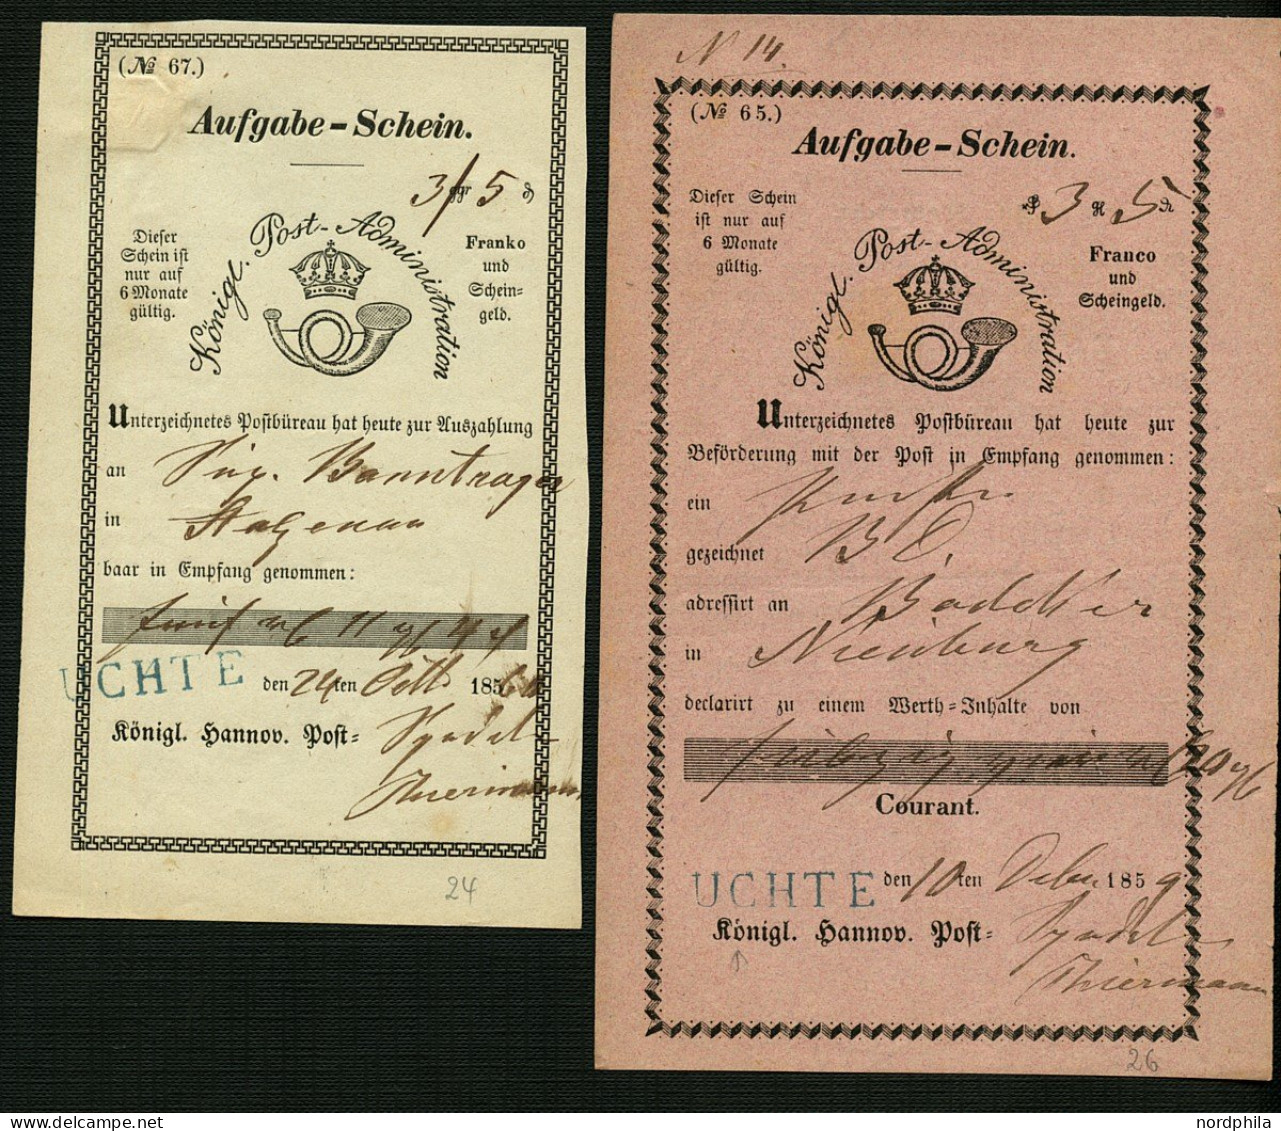 (№ 67.)
Aufgabe-Schein.
3 ggr 5 ₰
Königl. Post-Administration
Dieser
Schein ist
nur auf
6 Monate
gültig.
Franko
und
Schein-
geld.
Unterzeichnetes Postbüreau hat heute zur Auszahlung
an
in
baar in Empfang genommen:
11 14
UCHTE den 24ten Octb. 1860
Königl. Hannov. Post-
Thiermann
24
N 14.
(№ 65.)
Aufgabe-Schein.
3 5
Königl. Post-Administration
Dieser Schein
ist nur auf
6 Monate
gültig.
Franco
und
Scheingeld.
Unterzeichnetes Postbüreau hat heute zur
Beförderung mit der Post in Empfang genommen:
ein
gezeichnet B
adressirt an
in Nienburg
declarirt zu einem Werth-Inhalte von
Courant.
UCHTE den 10ten Decbr. 1859
Königl. Hannov. Post-
Thiermann
26
nordphila